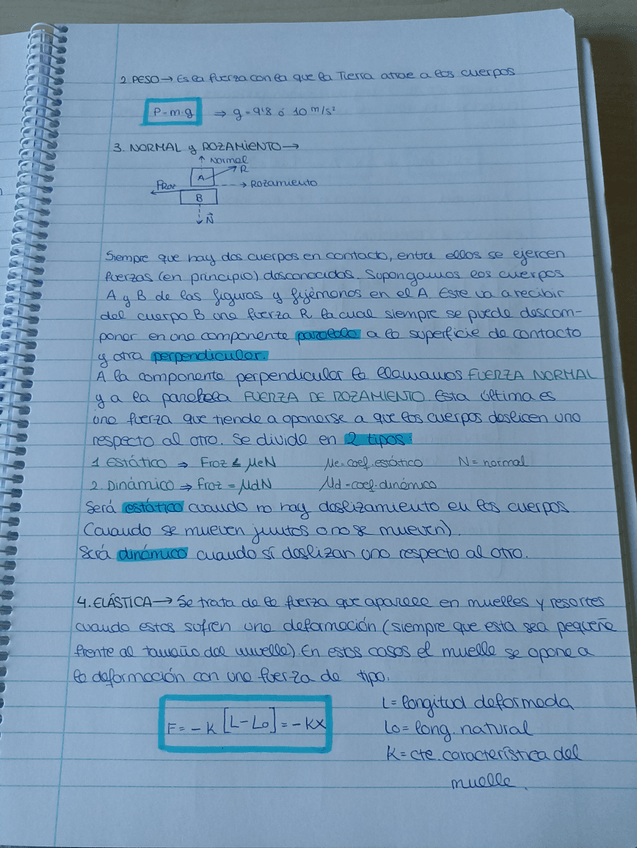 2. PESO → Es la fuerza con la que la Tierra atrae a los cuerpos
P=m·g ⇒ g=9'8 ó 10 m/s²
3. NORMAL y ROZAMIENTO →
Normal
R
A
Froz
Rozamiento
B
N
Siempre que hay dos cuerpos en contacto, entre ellos se ejercen
fuerzas (en principio) desconocidas. Supongamos los cuerpos
A y B de las figuras y fijémonos en el A. Este va a recibir
del cuerpo B una fuerza R la cual siempre se puede descom-
poner en una componente paralela a la superficie de contacto
y otra perpendicular.
A la componente perpendicular la llamamos FUERZA NORMAL
y a la paralela FUERZA DE ROZAMIENTO. Esta última es
una fuerza que tiende a oponerse a que los cuerpos deslicen uno
respecto al otro. Se divide en 2 tipos:
1. Estático ⇒ Froz ≤ μeN μe=coef.estático N=normal
2. Dinámico ⇒ Froz = μdN μd=coef.dinámico
Será estático cuando no hay deslizamiento en los cuerpos.
(Cuando se mueven juntos o no se mueven).
Será dinámico cuando sí deslizan uno respecto al otro.
4. ELÁSTICA → Se trata de la fuerza que aparece en muelles y resortes
cuando estos sufren una deformación (siempre que esta sea pequeña
frente al tamaño del muelle). En estos casos el muelle se opone a
la deformación con una fuerza de tipo.
F=-K[L-Lo]=-Kx
L=longitud deformada
Lo=long. natural
K=cte. característica del
muelle.